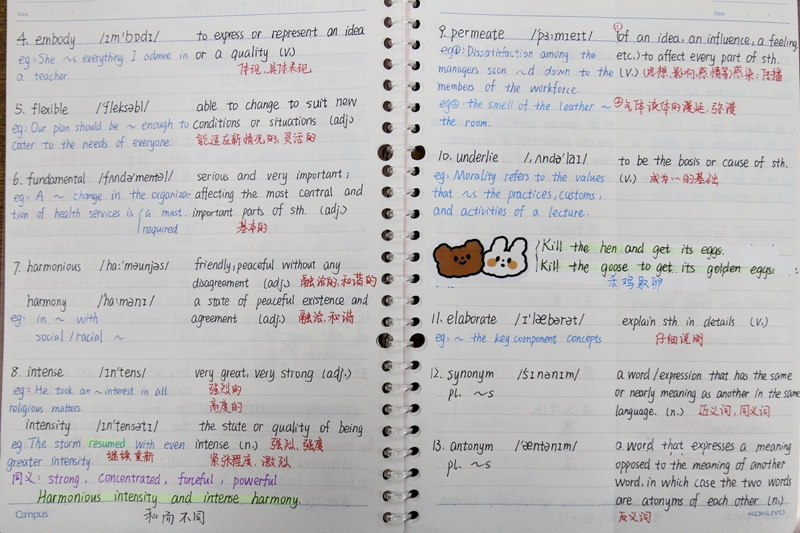 4. embody /ɪm'bɒdɪ/ to express or represent an idea
eg: She ~s everything I admire in or a quality (v.)
a teacher. 体现,具体表现
5. flexible /'fleksəbl/ able to change to suit new
eg: Our plan should be ~ enough to conditions or situations (adj.)
cater to the needs of everyone. 能适应新情况的,灵活的
6. fundamental /fʌndə'mentəl/ serious and very important;
eg: A ~ change in the organiza- affecting the most central and
tion of health services is (a must. important parts of sth. (adj.)
required 基本的
7. harmonious /ha:'məunjəs/ friendly, peaceful without any
disagreement (adj.) 融洽的,和谐的
harmony /ha:mənɪ/ a state of peaceful existence and
eg: in ~ with agreement (adj.) 融洽,和谐
social / racial ~
8. intense /ɪn'tens/ very great, very strong (adj.)
eg: He took an ~ interest in all 强烈的
religious matters. 高度的
intensity /ɪn'tensətɪ/ the state or quality of being
eg. The storm resumed with even intense (n.) 强烈,强度
greater intensity. 继续重新 紧张程度,激烈
同义: strong, concentrated, forceful, powerful
Harmonious intensity and intense harmony.
Campus 和而不同
9. permeate /pɜ:mɪeɪt/ ①(of an idea, an influence, a feeling
eg①: Dissatisfaction among the etc.) to affect every part of sth.
managers soon ~d down to the (v.) (思想,影响,感情等)感染;传播
members of the workforce.
eg②: the smell of the leather ~ ②气体液体的漫延,弥漫
the room.
10. underlie /ˌʌndə'laɪ/ to be the basis or cause of sth.
eg: Morality refers to the values (v.) 成为…的基础
that ~s the practices, customs,
and activities of a lecture.
Kill the hen and get its eggs.
Kill the goose to get its golden eggs.
杀鸡取卵
11. elaborate /ɪ'læbərət/ explain sth in details (v.)
eg: ~ the key component concepts 仔细说明
12. synonym /sɪnənɪm/ a word/expression that has the same
pl. ~s or nearly meaning as another in the same
language. (n.) 近义词,同义词
13. antonym /'æntənɪm/ a word that expresses a meaning
pl. ~s opposed to the meaning of another
word, in which case the two words
are atonyms of each other (n.)
反义词
KOKUYO